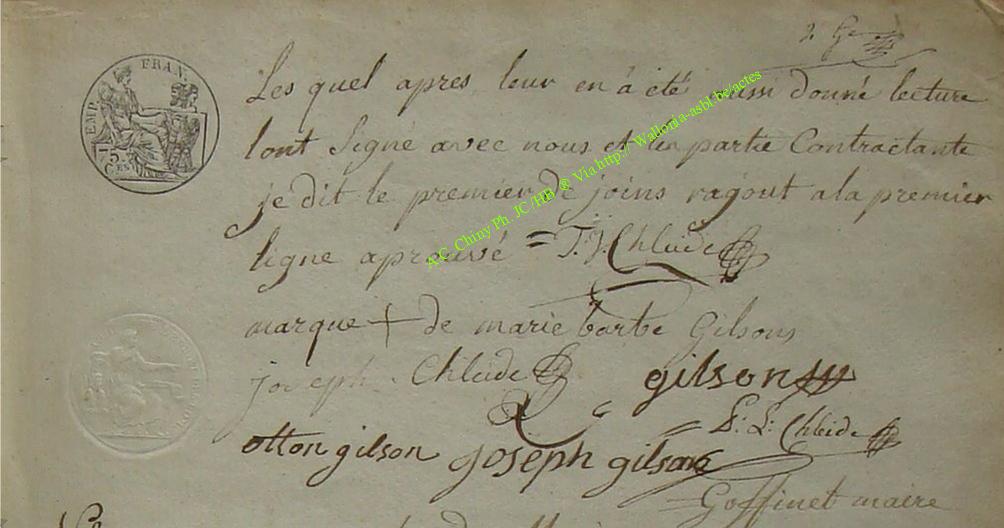 Les quel apres leur en à été aussi donné lecture
lont Signé avec nous et les partie Contractante
je dit le premier De joins ragout a la premier
ligne aprouvé = T. J. Chleide
marque + de marie barbe Gilsons
joseph Chleide gilson
P: L: Chleide
otton gilson joseph gilson
Goffinet maire
EMP. FRAN.
75
CES
A.C. Chiny Ph. JC /HB ® Via http://Wallonia-asbl.be/actes